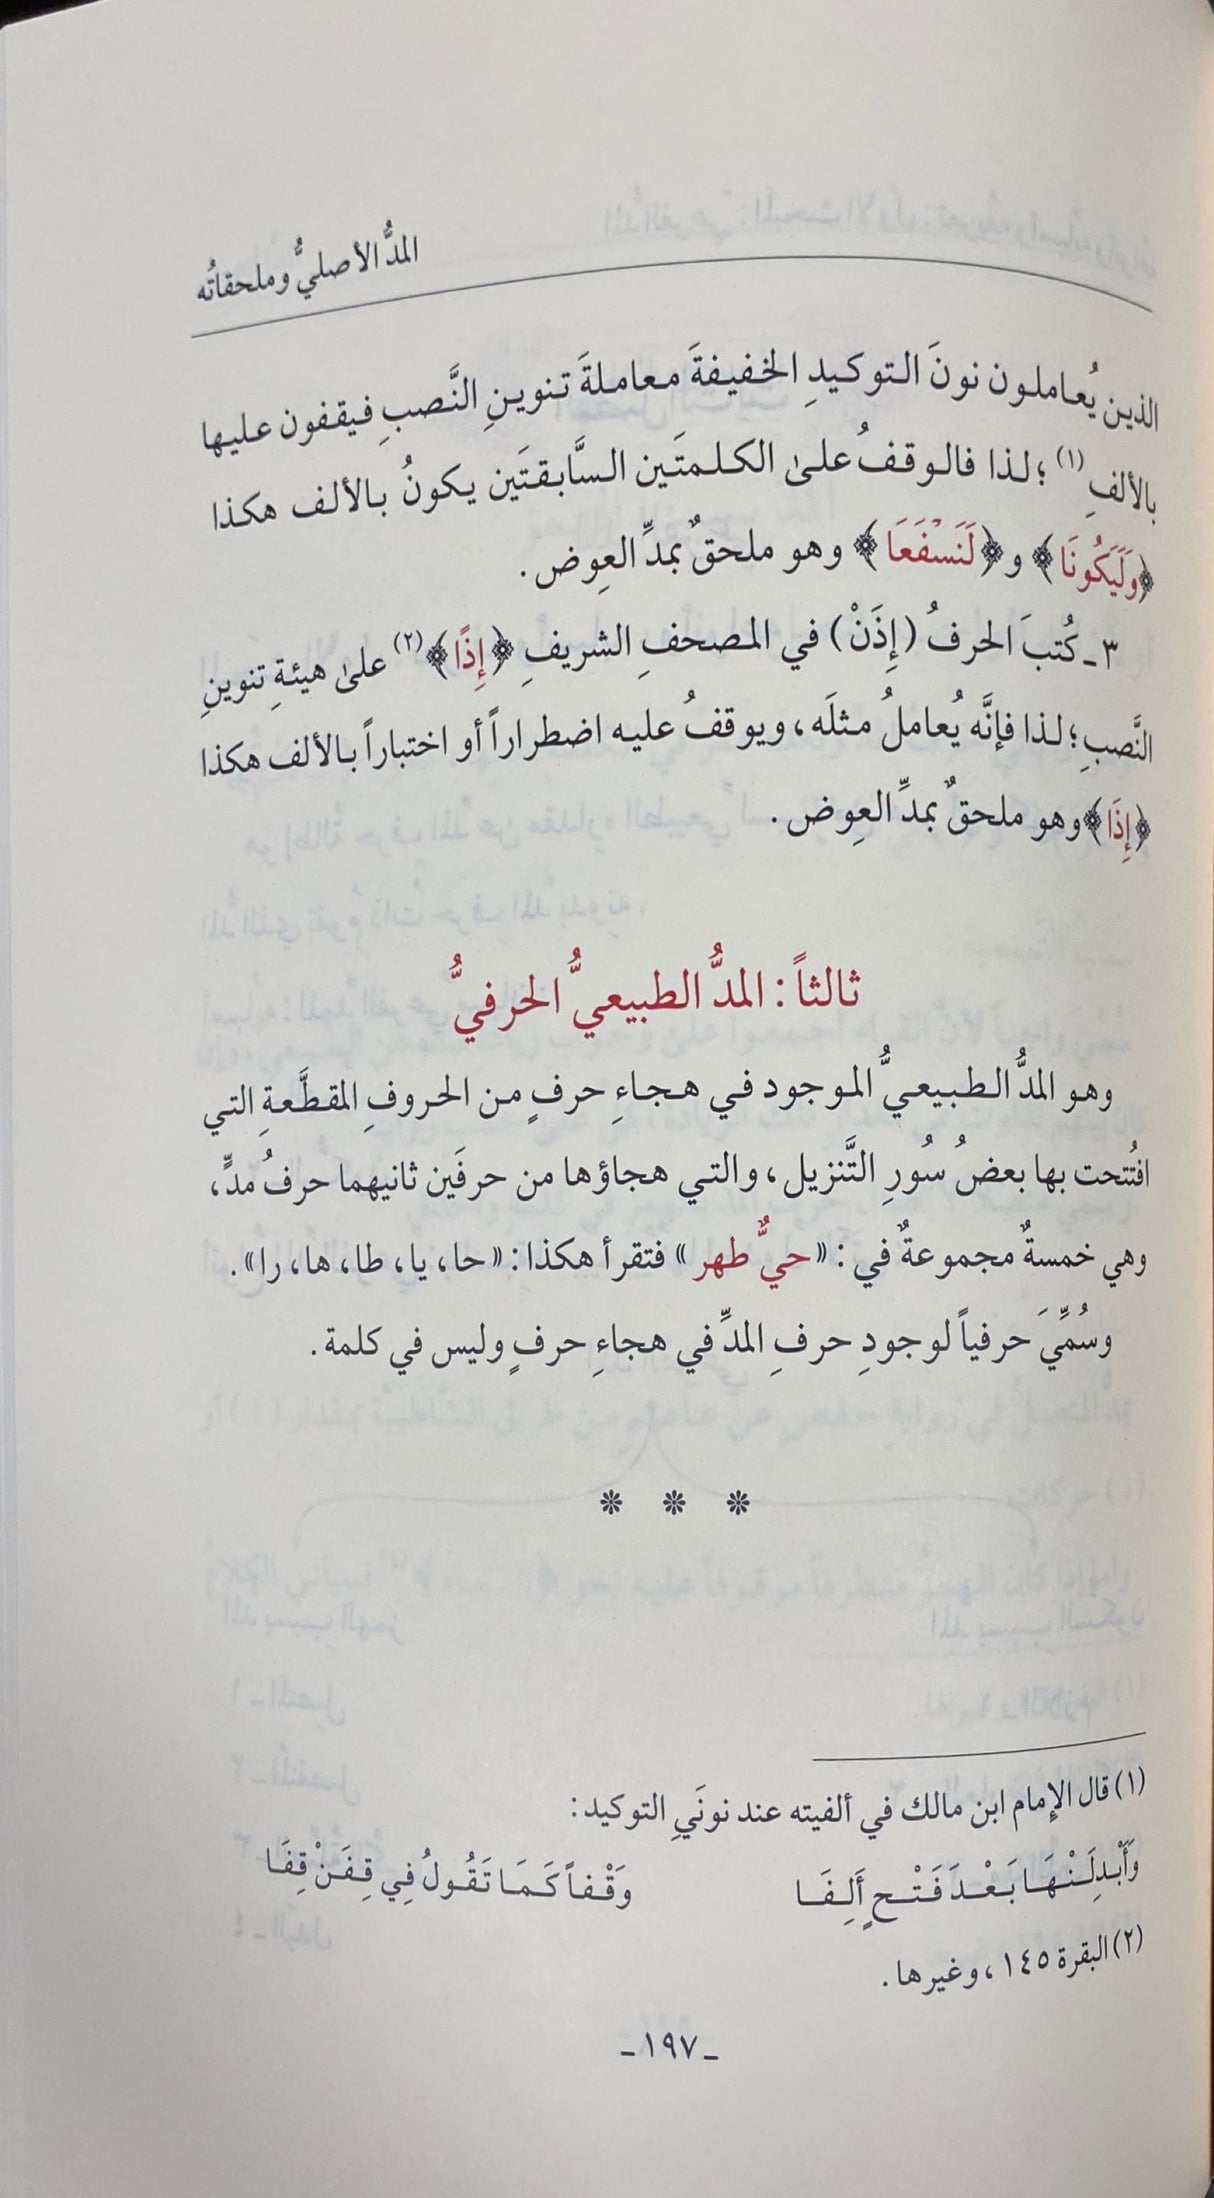 المدُّ الأصليُّ وملحقاتُه
الذين يُعاملون نونَ التوكيدِ الخفيفةَ معاملةَ تنوينِ النَّصبِ فيقفون عليها
بالألفِ(١)؛ لذا فالوقفُ علىٰ الكلمتَين السَّابقتَين يكونُ بالألف هكذا
﴿وَلَيَكُونَا﴾ و﴿لَنَسْفَعَا﴾ وهو ملحقٌ بمدِّ العِوض.
٣ـ كُتبَ الحرفُ (إِذَنْ) في المصحفِ الشريفِ ﴿إِذًا﴾(٢) علىٰ هيئةِ تنوينِ
النَّصبِ؛ لذا فإنَّه يُعاملُ مثلَه، ويوقفُ عليه اضطراراً أو اختباراً بالألف هكذا
﴿إِذَا﴾ وهو ملحقٌ بمدِّ العِوض.
ثالثاً: المدُّ الطبيعيُّ الحرفيُّ
وهو المدُّ الطبيعيُّ الموجود في هجاءِ حرفٍ من الحروفِ المقطَّعةِ التي
افتُتحت بها بعضُ سُورِ التَّنزيل، والتي هجاؤها من حرفَين ثانيهما حرفُ مدٍّ،
وهي خمسةٌ مجموعةٌ في: «حيٌّ طهر» فتقرأ هكذا: «حا، يا، طا، ها، را».
وسُمِّيَ حرفياً لوجودِ حرفِ المدِّ في هجاءِ حرفٍ وليس في كلمة.
* * *
(١) قال الإمام ابن مالك في ألفيته عند نونَيِ التوكيد:
وَأَبْدِلَنْهَا بَعْدَ فَتْحٍ أَلِفَا وَقْفاً كَمَا تَقُولُ فِي قِفَنْ قِفَا
(٢) البقرة ١٤٥، وغيرها.
ـ ١٩٧ ـ